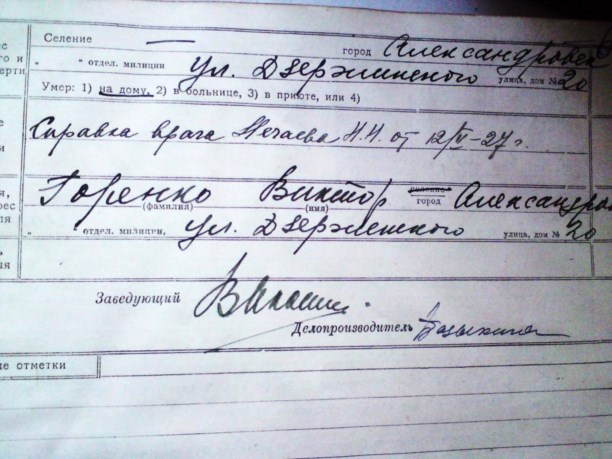 Селение — город Александровск
" " отдел. милиции ул. Дзержинского улица, дом № 20
Умер: 1) на дому, 2) в больнице, 3) в приюте, или 4)
Справка врача Нечаева Н.Н. от 12/IV-27 г.
Горенко Виктор селение Александров
(фамилия) (имя) город
" отдел. милиции, ул. Дзержинского улица, дом № 20
Заведующий
Делопроизводитель
ые отметки